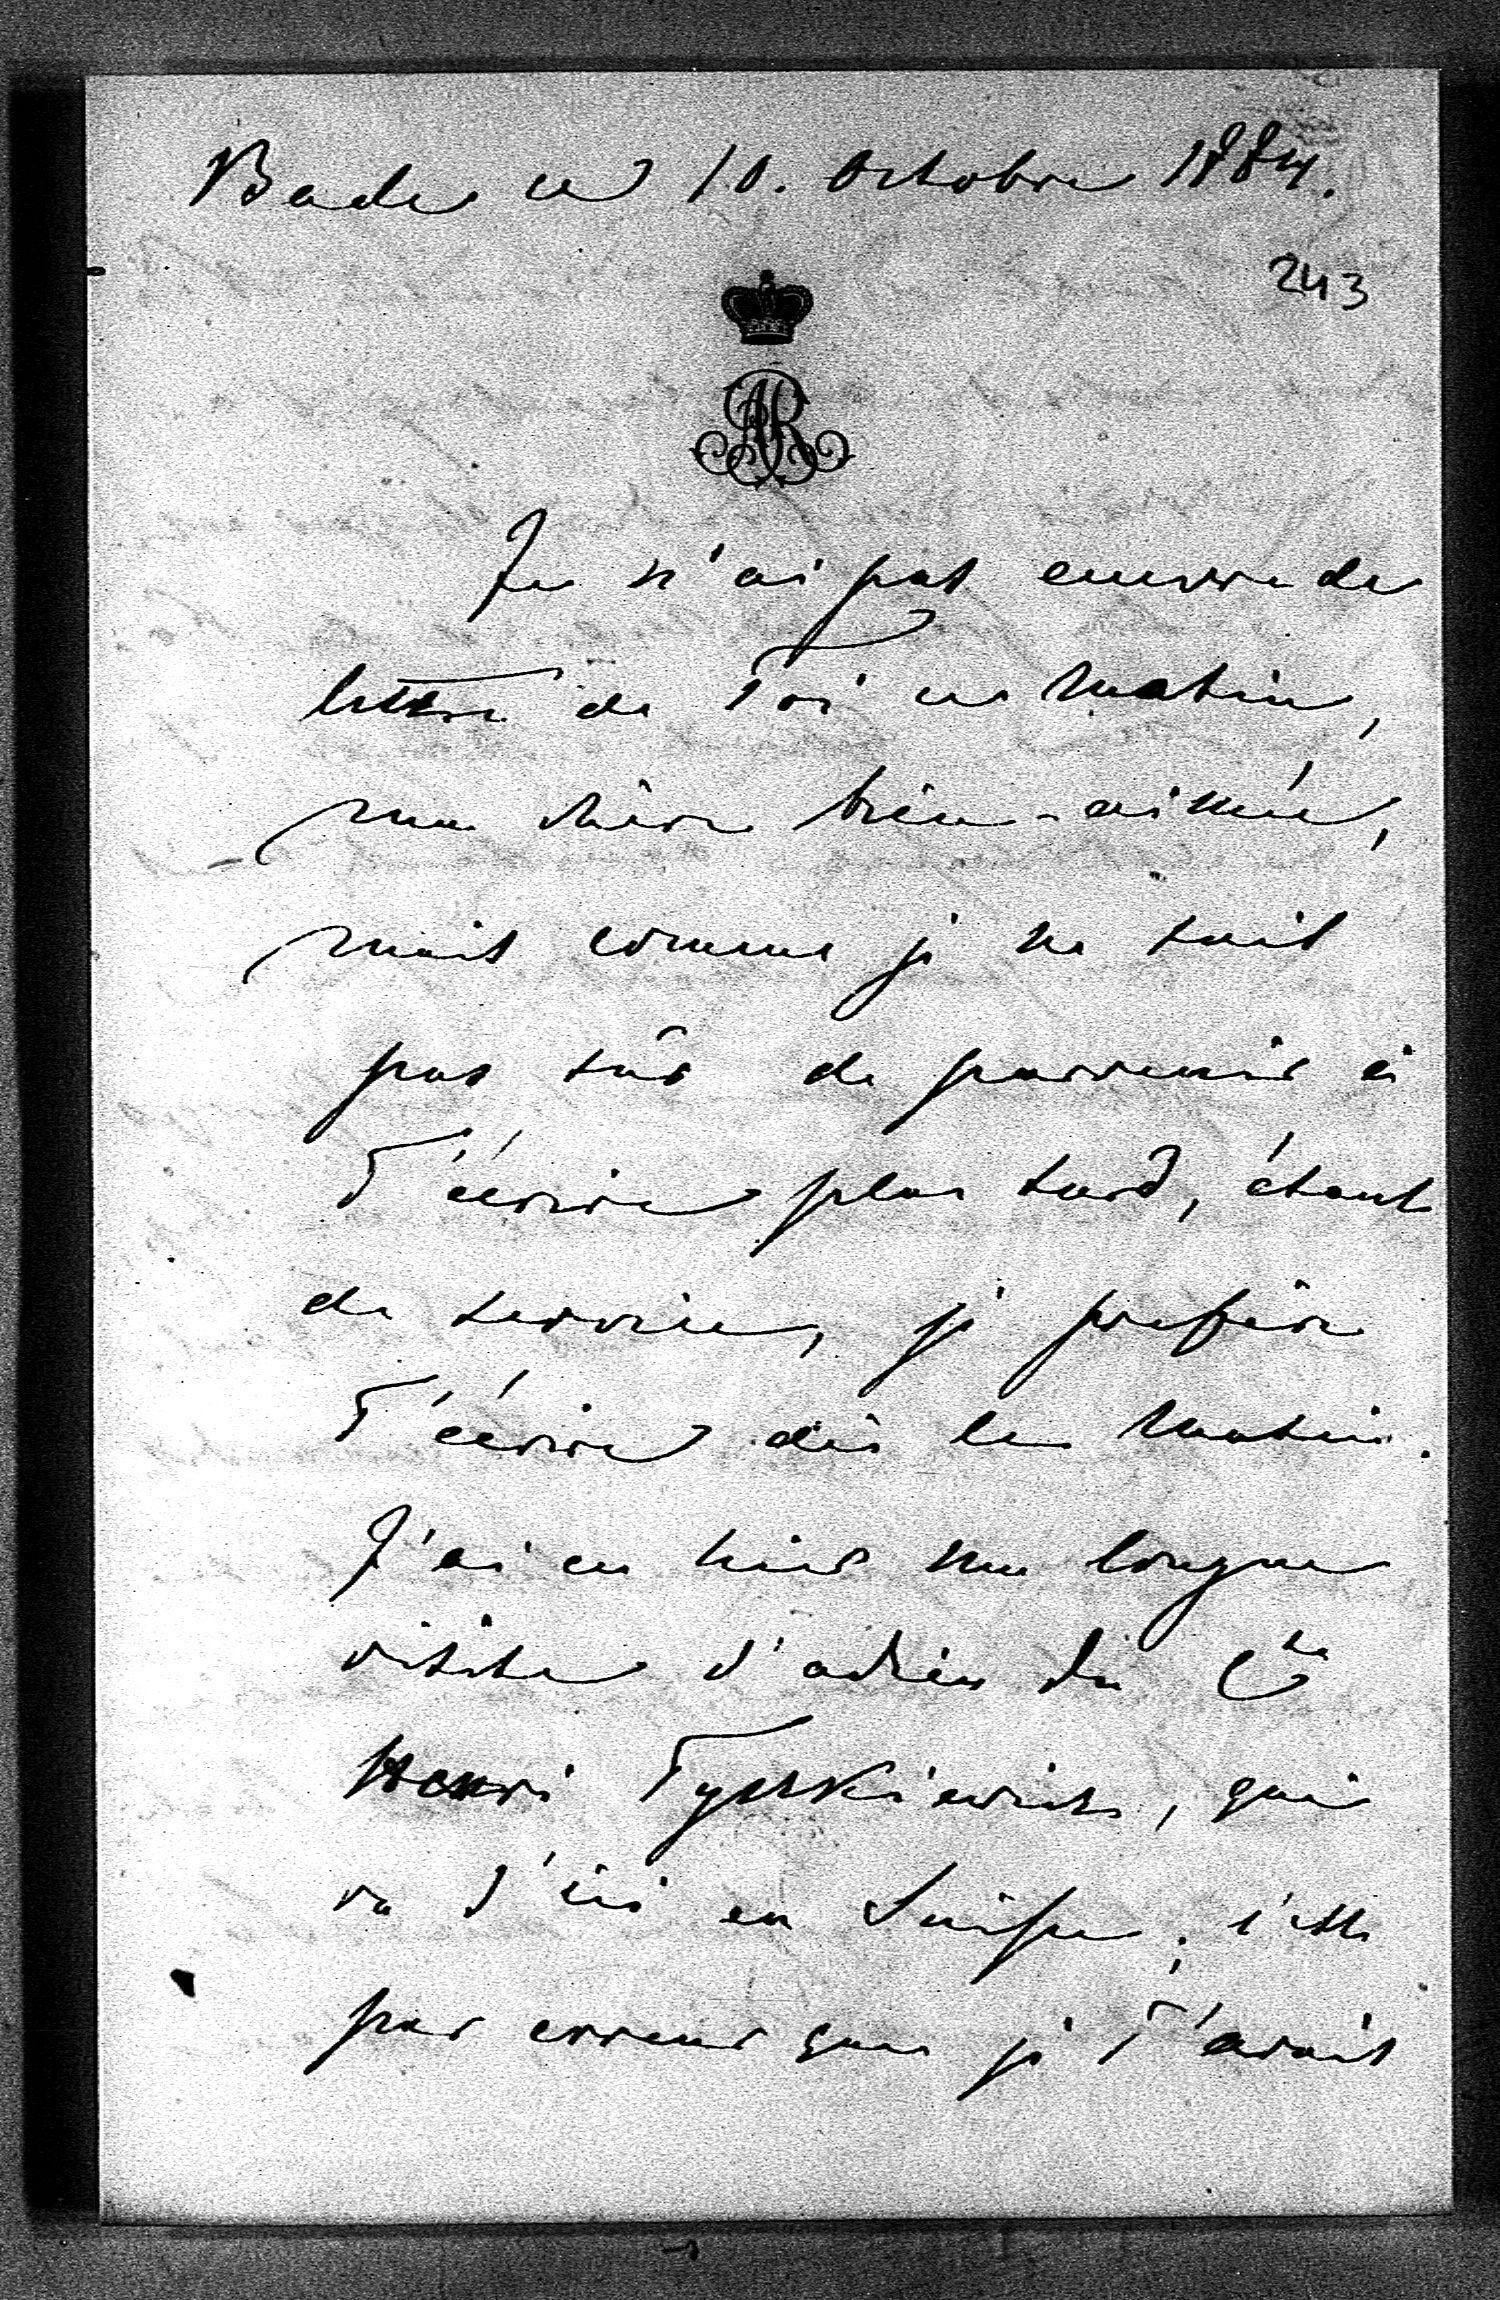 Bade ce 10. Octobre 1884.
243
AR
Je n'ai pas encore de
lettre de Toi ce matin,
ma chère bien-aimée,
mais comme je ne suis
pas sûr de parvenir à
T'écrire plus tard, étant
de service, je préfère
T'écrire dès le matin.
J'ai eu hier une longue
visite d'adieu du Cte
Henri Tyszkiewicz, qui
va d'ici en Suisse; c'est
par erreur que je T'avais